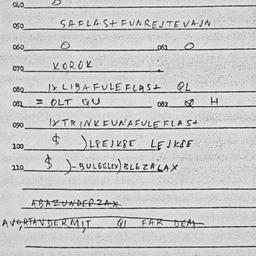 040
050 SAFLAST FUNREJTEVAJN
060 O 061 O
070 KOROK
080 IX LIBAFULEFLAST QL
081 = OLT GU 082 H
090 IXTRINKFUNAFULEFLAST
100 $ )LBEJKBE LEJKBE
110 $ )-BULGELEX)BLEZALAX
ABAZUNDERZAX
AVGRTAVDERMIT QI FAR DEM